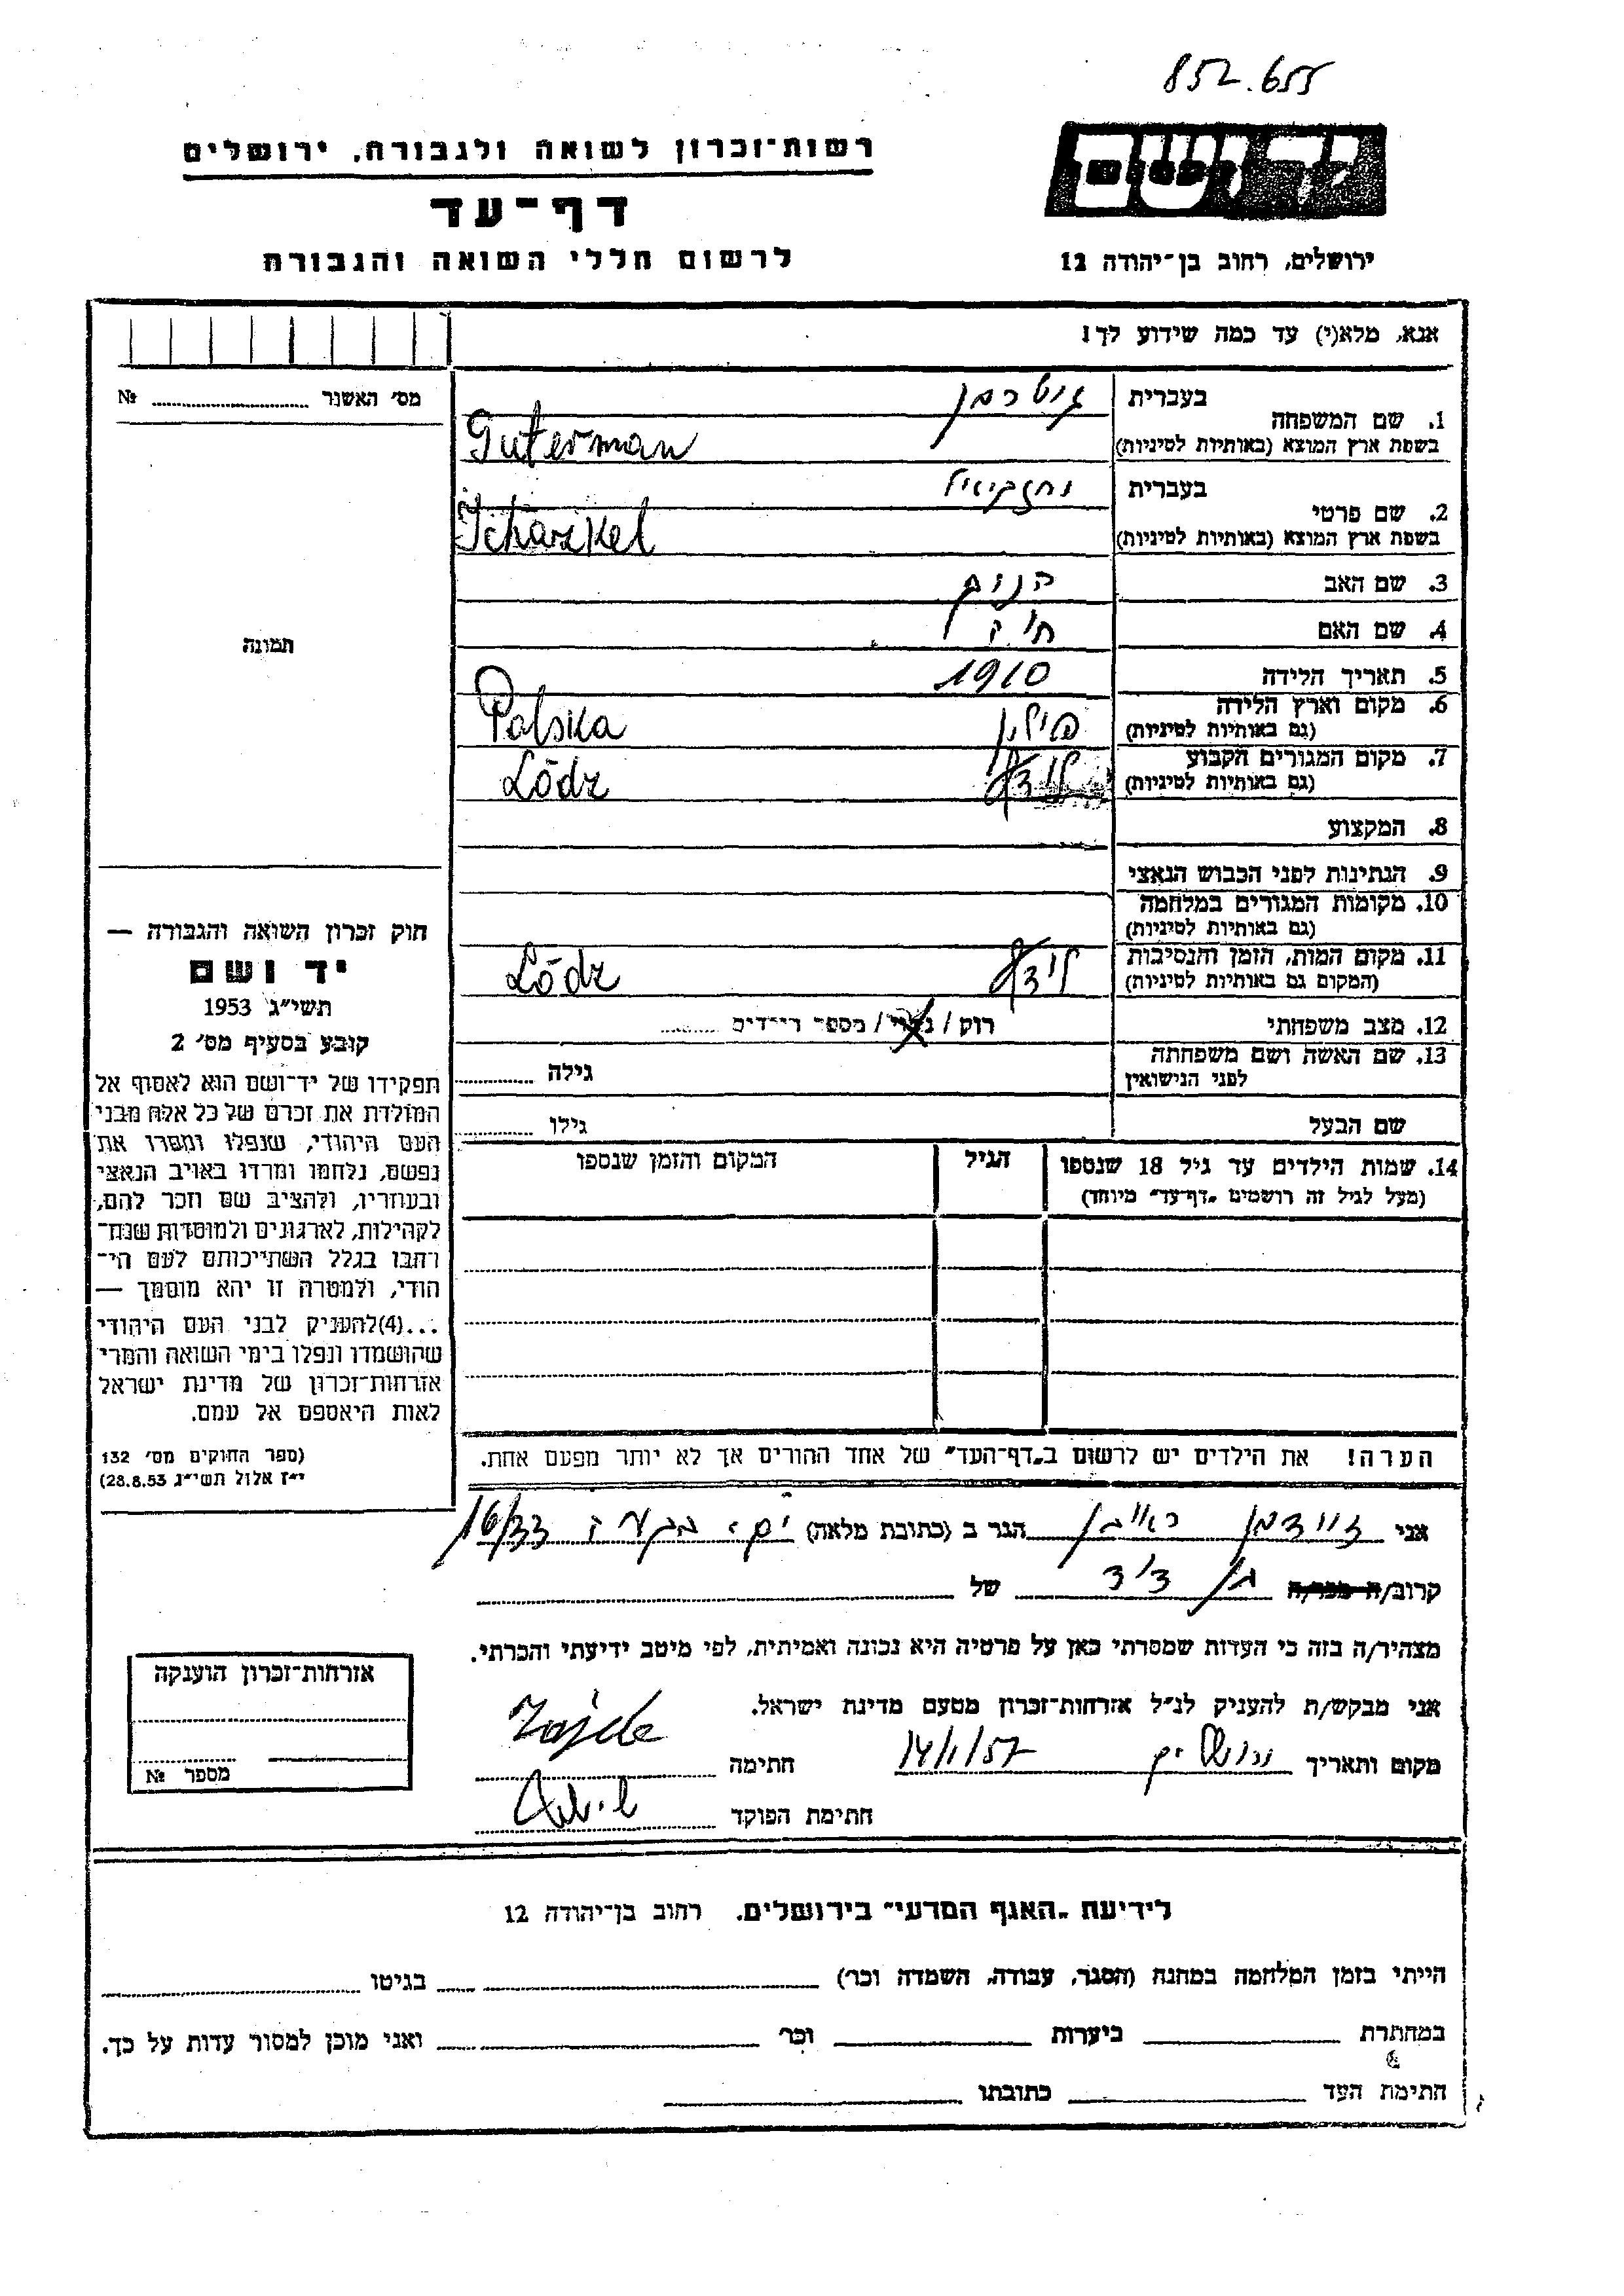 852.655
יד ושם
ירושלים, רחוב בן־יהודה 12
רשות־זכרון לשואה ולגבורה, ירושלים
דף־עד
לרשום חללי השואה והגבורה
אנא, מלא(י) עד כמה שידוע לך!
מס׳ האשנר № 
1. שם המשפחה
בעברית גוטרמן
בשפת ארץ המוצא (באותיות לטיניות) Guterman
2. שם פרטי
בעברית
בשפת ארץ המוצא (באותיות לטיניות)
3. שם האב
4. שם האם
5. תאריך הלידה 1910
6. מקום וארץ הלידה
(גם באותיות לטיניות) פולין Polska
7. מקום המגורים הקבוע
(גם באותיות לטיניות) לודז׳ Lódz
8. המקצוע
9. הנתינות לפני הכבוש הנאצי
10. מקומות המגורים במלחמה
(גם באותיות לטיניות)
11. מקום המות, הזמן והנסיבות
(המקום גם באותיות לטיניות) לודז׳ Lódz
12. מצב משפחתי רוק / נשוי / מספר הילדים
13. שם האשה ושם משפחתה
לפני הנישואין גילה
שם הבעל גילו
14. שמות הילדים עד גיל 18 שנספו הגיל המקום והזמן שנספו
(מעל לגיל זה רושמים „דף־עד״ מיוחד)
הערה! את הילדים יש לרשום ב„דף־העד״ של אחד ההורים אך לא יותר מפעם אחת.
תמונה
חוק זכרון השואה והגבורה —
יד ושם
תשי״ג 1953
קובע בסעיף מס׳ 2
תפקידו של יד־ושם הוא לאסוף אל
המולדת את זכרם של כל אלה מבני
העם היהודי, שנפלו ומסרו את
נפשם, נלחמו ומרדו באויב הנאצי
ובעוזריו, ולהציב שם וזכר להם,
לקהילות, לארגונים ולמוסדות שנח־
רחבו בגלל השתייכותם לעם הי־
הודי, ולמטרה זו יהא מוסמך —
...(4)להעניק לבני העם היהודי
שהושמדו ונפלו בימי השואה והמרי
אזרחות־זכרון של מדינת ישראל
לאות היאספם אל עמם.
(ספר החוקים מס׳ 132
י״ז אלול תשי״ג 28.8.53)
אני זיידמן ראובן הגר ב (כתובת מלאה) 16/33
קרוב/ה מכר/ה בן דוד של
מצהיר/ה בזה כי העדות שמסרתי כאן על פרטיה היא נכונה ואמיתית, לפי מיטב ידיעתי והכרתי.
אני מבקש/ת להעניק לנ״ל אזרחות־זכרון מטעם מדינת ישראל.
מקום ותאריך ירושלים 14/1/57 חתימה
חתימת הפוקד
אזרחות־זכרון הוענקה
מספר №
לידיעת „האגף המדעי״ בירושלים, רחוב בן־יהודה 12
הייתי בזמן המלחמה במחנה (הסגר, עבודה, השמדה וכר) בגיטו
במחתרת ביערות וכר ואני מוכן למסור עדות על כך.
חתימת העד כתובתו